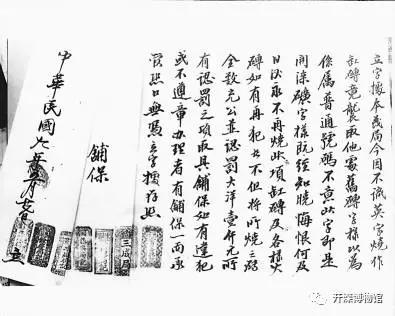 立字據成局今因不識英字燒作
缸磚竟襲取他家舊磚字樣以為
係属普通號碼不意此字即是
開灤礦字樣既經知曉悔恨何及
日後永不再燒此項缸磚及各樣火
磚如有再犯者不但將所燒之磚
全数充公並認罰大洋壹仟元所
有認罰之項取具鋪保如有違犯
或不遵章办理者有鋪保一面承
管恐口無憑立字據存照
鋪保
三成局
中華民國九年月立
开滦博物馆